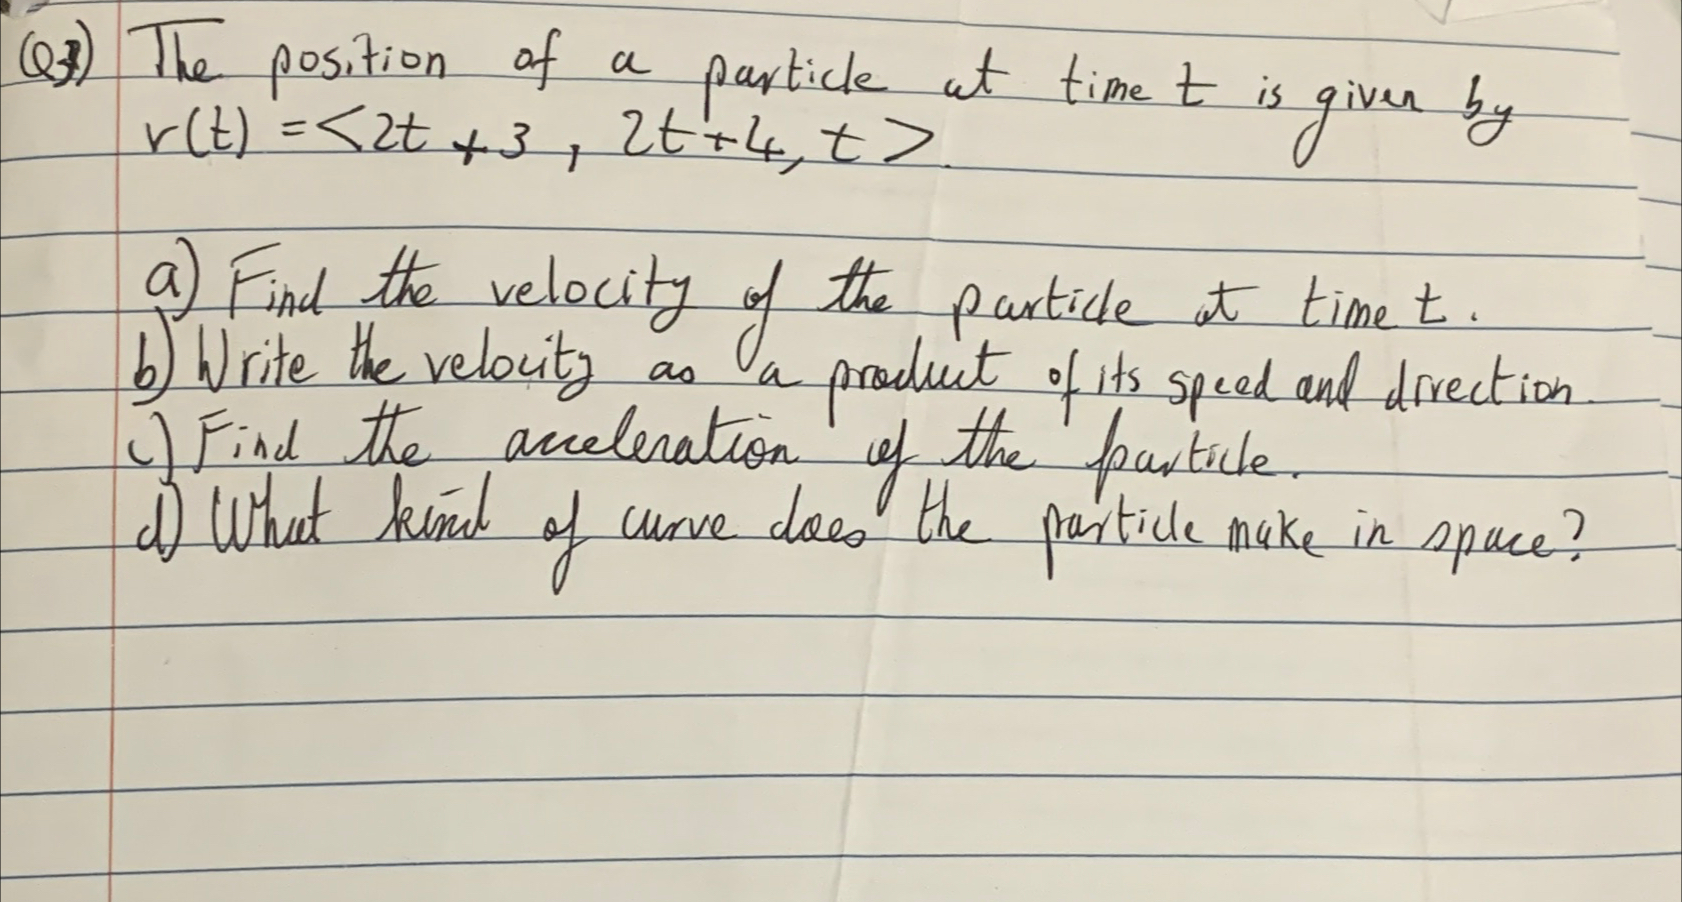 Q3) The position of a particle at time t is given by
r(t) = <2t + 3, 2t + 4, t>
a) Find the velocity of the particle at time t.
b) Write the velocity as a product of its speed and direction.
c) Find the acceleration of the particle.
d) What kind of curve does the particle make in space?